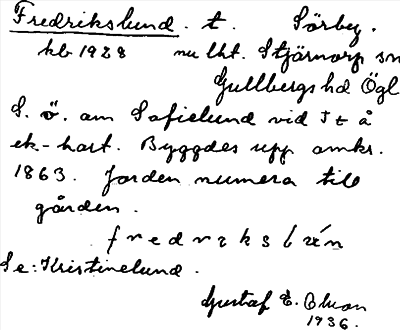 Fredrikslund. t. Sörby.
kb 1928 nu lht. Stjärnorp sn
Gullbergs hd Ögl
S. ö. om Sofielund vid
ek.-kart. Byggdes upp omkr.
1863. Jorden numera till
gården.
Se: Kristinelund.
Gustaf E.
1936.